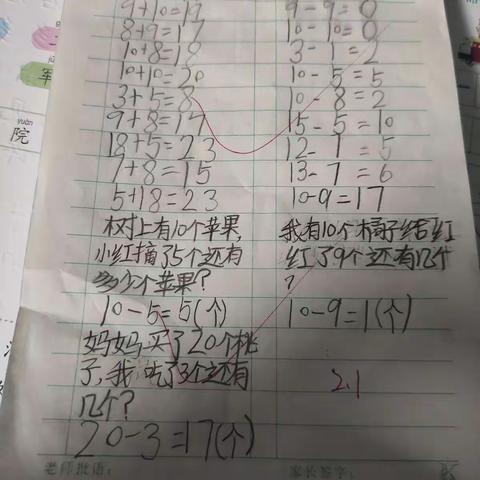 9+10=19
8+9=17
10+8=18
10+10=20
3+5=8
9+8=17
18+5=23
7+8=15
5+18=23
树上有10个苹果,
小红摘了5个还有
多少个苹果?
10-5=5(个)
妈妈买了20个桃
子,我吃了3个还有
几个?
20-3=17(个)
9-9=0
10-10=0
3-1=2
10-5=5
10-8=2
15-5=10
12-1=5
13-7=6
10-9=17
我有10个橘子给红
红了9个还有几个
?
10-9=1(个)
2.1
老师批语:
家长签字:
yuàn
院
军